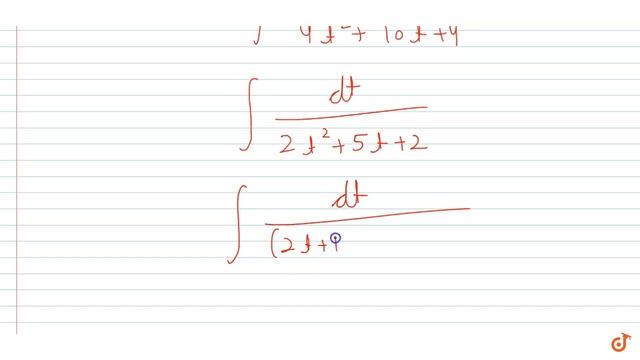 ∫ 4t² + 10t + 4
∫ dt / 2t² + 5t + 2
∫ dt / (2t + 1